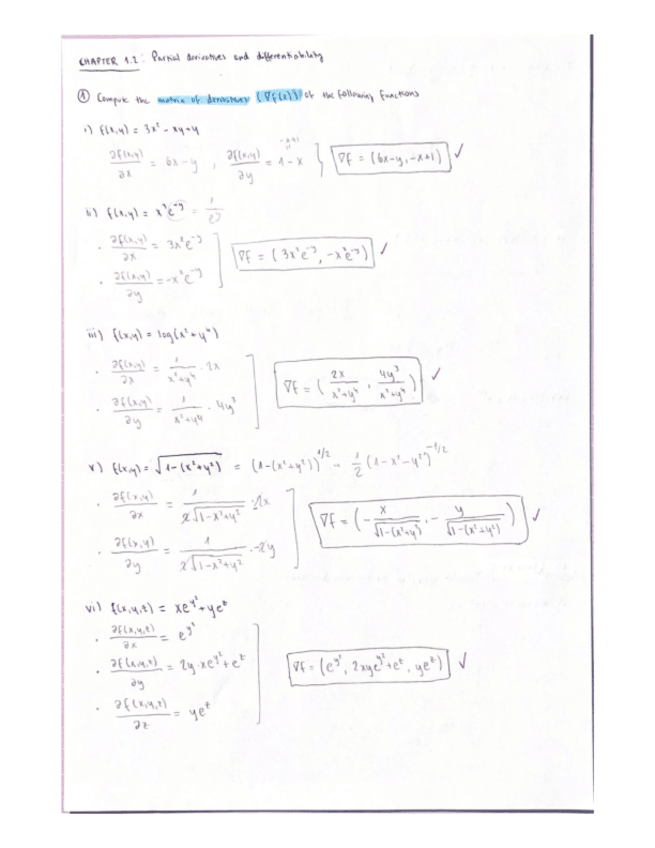 CHAPTER 1.2: Partial derivatives and differentiability
① Compute the matrix of derivatives (∇f(x)) of the following functions
i) f(x,y) = 3x² - xy+y
∂f(x,y)/∂x = 6x-y , ∂f(x,y)/∂y = 1-x } ∇f = (6x-y, -x+1) ✓
-x+1
ii) f(x,y) = x³e^-y = 1/e^y
· ∂f(x,y)/∂x = 3x²e^-y
· ∂f(x,y)/∂y = -x³e^-y
] ∇f = (3x²e^-y, -x³e^-y) ✓
iii) f(x,y) = log(x²+y⁴)
· ∂f(x,y)/∂x = 1/(x²+y⁴) · 2x
· ∂f(x,y)/∂y = 1/(x²+y⁴) · 4y³
] ∇f = (2x/(x²+y⁴), 4y³/(x²+y⁴)) ✓
v) f(x,y) = √(1-(x²+y²)) = (1-(x²+y²))^1/2 - 1/2 (1-x²-y²)^-1/2
· ∂f(x,y)/∂x = 1/(2√(1-x²+y²)) · 2x
· ∂f(x,y)/∂y = 1/(2√(1-x²+y²)) · -2y
] ∇f = (- x/√(1-(x²+y²)), - y/√(1-(x²+y²))) ✓
vi) f(x,y,z) = xe^y²+ye^z
· ∂f(x,y,z)/∂x = e^y²
· ∂f(x,y,z)/∂y = 2y·xe^y²+e^z
· ∂f(x,y,z)/∂z = ye^z
] ∇f = (e^y², 2xye^y²+e^z, ye^z) ✓